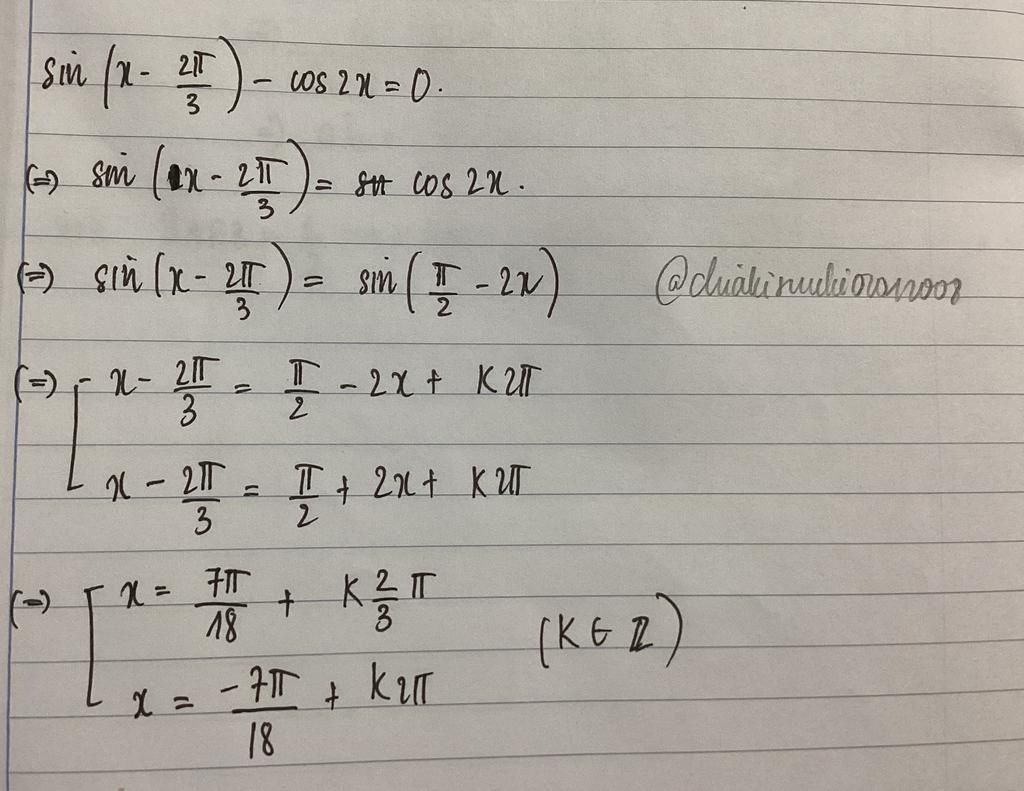 sin (x - 2π/3) - cos 2x = 0.
(=) sin (x - 2π/3) = cos 2x.
(=) sin (x - 2π/3) = sin (π/2 - 2x)
(=) [ x - 2π/3 = π/2 - 2x + K2π
x - 2π/3 = π/2 + 2x + K2π
(=) [ x = 7π/18 + K 2/3 π
x = -7π/18 + K2π
(K ∈ Z)